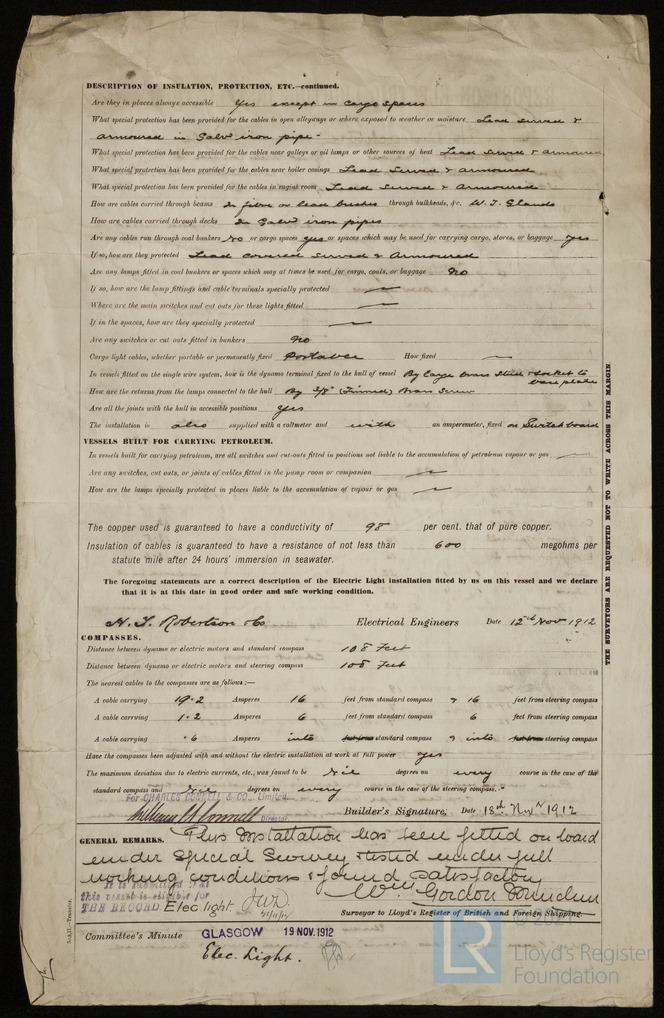 DESCRIPTION OF INSULATION, PROTECTION, ETC.—continued.
Are they in places always accessible yes except in cargo spaces
What special protection has been provided for the cables in open alleyways or where exposed to weather or moisture Lead served &
armoured in Galvd iron pipe -
What special protection has been provided for the cables near galleys or oil lamps or other sources of heat Lead served & armoured
What special protection has been provided for the cables near boiler casings Lead Served & armoured
What special protection has been provided for the cables in engine room Lead Served & Armoured
How are cables carried through beams In fibre or lead bushes through bulkheads, &c. W. T. Glands
How are cables carried through decks In Galvd iron pipes
Are any cables run through coal bunkers No or cargo spaces yes or spaces which may be used for carrying cargo, stores, or baggage yes
If so, how are they protected Lead covered served & Armoured
Are any lamps fitted in coal bunkers or spaces which may at times be used for cargo, coals, or baggage No
If so, how are the lamp fittings and cable terminals specially protected
Where are the main switches and cut outs for these lights fitted
If in the spaces, how are they specially protected
Are any switches or cut outs fitted in bunkers No
Cargo light cables, whether portable or permanently fixed Portable How fixed
In vessels fitted on the single wire system, how is the dynamo terminal fixed to the hull of vessel By large brass stud & socket to
bare plate
How are the returns from the lamps connected to the hull By 3/8" (Tinned) Brass Screw
Are all the joints with the hull in accessible positions Yes
The installation is also supplied with a voltmeter and with an amperemeter, fixed on Switchboard
VESSELS BUILT FOR CARRYING PETROLEUM.
In vessels built for carrying petroleum, are all switches and cut-outs fitted in positions not liable to the accumulation of petroleum vapour or gas
Are any switches, cut outs, or joints of cables fitted in the pump room or companion
How are the lamps specially protected in places liable to the accumulation of vapour or gas
The copper used is guaranteed to have a conductivity of 98 per cent. that of pure copper.
Insulation of cables is guaranteed to have a resistance of not less than 600 megohms per
statute mile after 24 hours' immersion in seawater.
The foregoing statements are a correct description of the Electric Light installation fitted by us on this vessel and we declare
that it is at this date in good order and safe working condition.
H. T. Robertson & Co Electrical Engineers Date 12th Nov 1912
COMPASSES.
Distance between dynamo or electric motors and standard compass 108 feet
Distance between dynamo or electric motors and steering compass 108 feet
The nearest cables to the compasses are as follows:—
A cable carrying 19.2 Amperes 16 feet from standard compass & 16 feet from steering compass
A cable carrying 1.2 Amperes 6 feet from standard compass 6 feet from steering compass
A cable carrying .6 Amperes into standard compass & into steering compass
Have the compasses been adjusted with and without the electric installation at work at full power yes
The maximum deviation due to electric currents, etc., was found to be Nil degrees on every course in the case of the
standard compass and Nil degrees on every course in the case of the steering compass.
For CHARLES CONNELL & CO., Limited.
Director. Builder's Signature, Date 18th Novr 1912
GENERAL REMARKS. This Installation has been fitted on board
under Special Survey & tested under full
working conditions & found satisfactory
It is submitted that
this vessel is eligible for
THE RECORD Elec light. JWD
Wm Gordon
Surveyor to Lloyd's Register of British and Foreign Shipping.
Committee's Minute GLASGOW 19 NOV. 1912
Elec. Light.
THE SURVEYORS ARE REQUESTED NOT TO WRITE ACROSS THIS MARGIN
LR
Lloyd's Register
Foundation